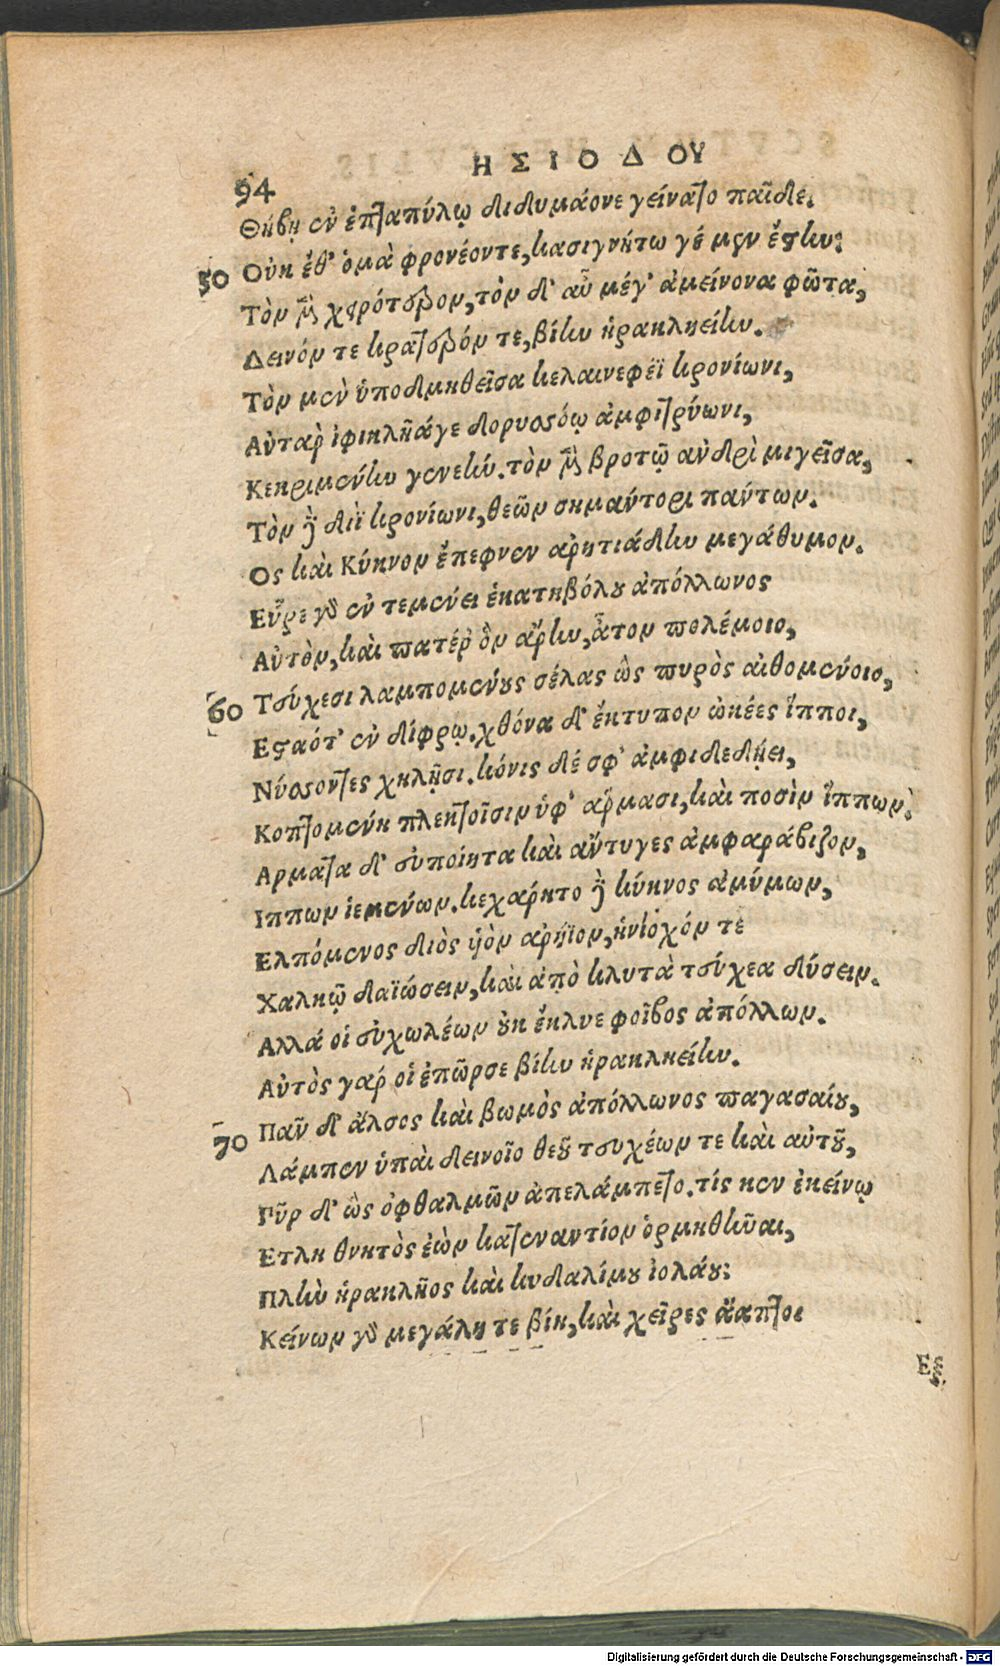 94
ΗΣΙΟΔΟΥ
Θήβῃ ἐν ἑπταπύλῳ διδυμάονε γείνατο παῖδε.
50 Οὐκ ἔθ' ὁμὰ φρονέοντε, κασιγνήτω γέ μεν ἔστην:
Τὸν μὲν χερότερον, τὸν δ' αὖ μέγ' ἀμείνονα φῶτα,
Δεινόν τε κρατερόν τε, βίην ἡρακληείην.
Τὸν μὲν ὑποδμηθεῖσα κελαινεφέϊ κρονίωνι,
Αὐτὰρ ἰφικλῆάγε δορυσσόῳ ἀμφιτρύωνι,
Κεκριμένην γενεήν. τὸν μὲν βροτῷ ανδρὶ μιγεῖσα,
Τὸν δὲ διῒ κρονίωνι, θεῶν σημαντορι παντων.
Ος καὶ Κύκνον ἔπεφνεν αρητιάδην μεγάθυμον.
Εὗρε γὰρ ἐν τεμένει ἑκατηβόλου ἀπόλλωνος
Αὐτὸν, καὶ πατέρ ὃν ἄρην, ἄτον πολέμοιο,
60 Τεύχεσι λαμπομένους σέλας ὣς πυρὸς αἰθομένοιο,
Εσταότ' ἐν δίφρῳ. χθόνα δ' ἔκτυπον ὠκέες ἵπποι,
Νύσσοντες χηλῇσι. κόνις δέ σφ' ἀμφιδεδῄει,
Κοπτομένη πλεκτοῖσιν ὑφ' αρμασι, καὶ ποσὶν ἵππων.
Αρματα δ' εὐποίητα καὶ αντυγες ἀμφαράβιζον,
Ιππων ἱεμένων. κεχάρητο δὲ κύκνος ἀμύμων,
Ελπόμενος διὸς ὑὸν αρήϊον, ἡνίοχόν τε
Χαλκῷ δαϊώσειν, καὶ ἀπὸ κλυτὰ τεύχεα δύσειν.
Αλλά οἱ εὐχωλέων οὐκ ἔκλυε φοῖβος ἀπόλλων.
Αὐτὸς γαρ οἱ ἐπῶρσε βίην ἡρακληείην.
70 Παν δ' ἄλσος καὶ βωμὸς ἀπόλλωνος παγασαίου,
Λάμπεν ὑπαὶ δεινοῖο θεοῦ τευχέων τε καὶ αὐτοῦ,
Πῦρ δ' ὣς ὀφθαλμῶν ἀπελάμπετο. τίς κεν ἐκείνῳ
Ετλη θνητὸς ἐὼν κατεναντίον ὁρμηθῆναι,
Πλὴν ἡρακλῆος καὶ κυδαλίμου ἰολάου;
Κείνων γὰρ μεγάλη τε βίη, καὶ χεῖρες ἄαπτοι
Ες
Digitalisierung gefördert durch die Deutsche Forschungsgemeinschaft - DFG